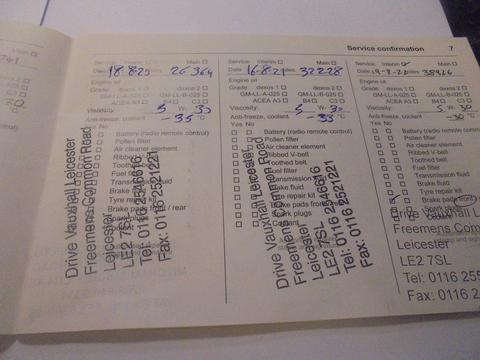 Service confirmation 7
Service: Interim Main
Date 18.8.20 miles 26364
Engine oil
Grade: dexos 1 dexos 2
GM-LL-A-025 GM-LL-B-025
ACEA A3 B4 C3
Viscosity: 5 W- 30
Anti-freeze, coolant -35 °C
Yes No
Battery (radio remote control)
Pollen filter
Air cleaner element
Ribbed V-belt
Toothed belt
Fuel filter
Transmission fluid
Brake fluid
Tyre repair kit
Brake pads front / rear
Spark plugs
Coolant
Drive Vauxhall Leicester
Freemens Common Road
Leicester
LE2 7SL
Tel: 0116 2546616
Fax: 0116 2521221
Service: Interim Main
Date 16.8.21 miles 32228
Engine oil
Grade: dexos 1 dexos 2
GM-LL-A-025 GM-LL-B-025
ACEA A3 B4 C3
Viscosity: 5 W- 30
Anti-freeze, coolant -33 °C
Yes No
Battery (radio remote control)
Pollen filter
Air cleaner element
Ribbed V-belt
Toothed belt
Fuel filter
Transmission fluid
Brake fluid
Tyre repair kit
Brake pads front
Spark plugs
Coolant
Drive Vauxhall Leicester
Freemens Common Road
Leicester
LE2 7SL
Tel: 0116 2546616
Fax: 0116 2521221
Service: Interim Main
Date miles
Engine oil
Grade: dexos 1
GM-LL-A-025
ACEA A3 B4
Viscosity: 5 W- 30
Anti-freeze, coolant -30 °C
Yes No
Battery (radio remote
Pollen filter
Air cleaner element
Ribbed V-belt
Toothed belt
Fuel filter
Transmission fluid
Brake fluid
Tyre repair kit
Brake pads front
Drive Vauxhall
Freemens Com
Leicester
LE2 7SL
Tel: 0116 255
Fax: 0116 2